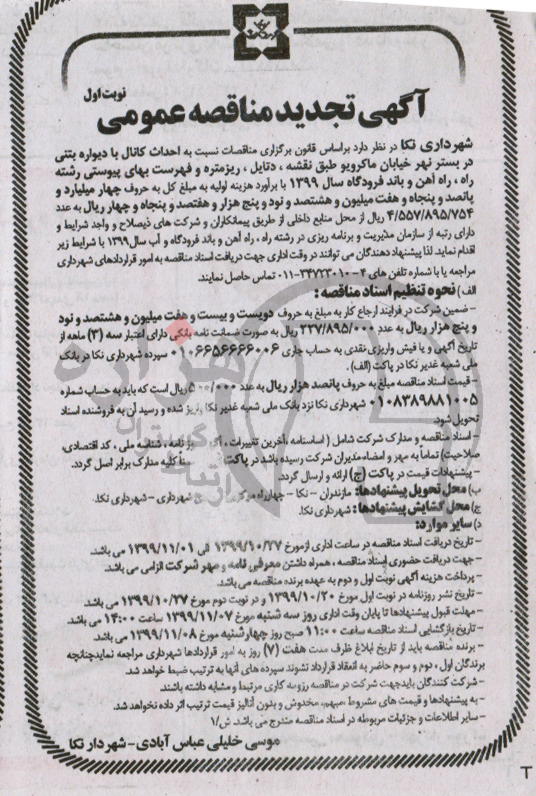 نوبت اول
آگهی تجدید مناقصه عمومی
شهرداری نکا در نظر دارد براساس قانون برگزاری مناقصات نسبت به احداث کانال با دیواره بتنی
در بستر نهر خیابان ماکرویو طبق نقشه ، دتایل ، ریزمتره و فهرست بهای پیوستی رشته
راه ، راه آهن و باند فرودگاه سال ۱۳۹۹ با برآورد هزینه اولیه به مبلغ کل به حروف چهار میلیارد و
پانصد و پنجاه و هفت میلیون و هشتصد و نود و پنج هزار و هفتصد و پنجاه و چهار ریال به عدد
۴/۵۵۷/۸۹۵/۷۵۴ ریال از محل منابع داخلی از طریق پیمانکاران و شرکت های ذیصلاح و واجد شرایط و
دارای رتبه از سازمان مدیریت و برنامه ریزی در رشته راه ، راه آهن و باند فرودگاه و آب سال ۱۳۹۹ با شرایط زیر
اقدام نماید. لذا پیشنهاد دهندگان می توانند در وقت اداری جهت دریافت اسناد مناقصه به امور قراردادهای شهرداری
مراجعه یا با شماره تلفن های ۴ - ۳۴۷۲۳۰۱۰-۰۱۱ تماس حاصل نمایند.
الف) نحوه تنظیم اسناد مناقصه :
- ضمین شرکت در فرایند ارجاع کار به مبلغ به حروف دویست و بیست و هفت میلیون و هشتصد و نود
و پنج هزار ریال به عدد ۲۲۷/۸۹۵/۰۰۰ ریال به صورت ضمانت نامه بانکی دارای اعتبار سه (۳) ماهه از
تاریخ آگهی و یا فیش واریزی نقدی به حساب جاری ۰۱۰۶۶۵۶۶۶۶۰۰۶ سپرده شهرداری نکا در بانک
ملی شعبه غدیر نکا در پاکت (الف) .
- قیمت اسناد مناقصه مبلغ به حروف پانصد هزار ریال به عدد ۵۰۰/۰۰۰ ریال است که باید به حساب شماره
۰۱۰۸۳۸۹۸۸۱۰۰۵ شهرداری نکا نزد بانک ملی شعبه غدیر نکا واریز شده و رسید آن به فروشنده اسناد
تحویل شود.
- اسناد مناقصه و مدارک شرکت شامل ( اساسنامه ،آخرین تغییرات ، روزنامه ، شناسه ملی ، کد اقتصادی،
صلاحیت) تماما به مهر و امضاء مدیران شرکت رسیده باشد در پاکت کلیه مدارک برابر اصل گردد.
- پیشنهادات قیمت در پاکت (ج) ارائه و ارسال گردد.
ب) محل تحویل پیشنهادها: مازندران - نکا - چهارراه شهرداری - شهرداری نکا.
ج) محل گشایش پیشنهادها : شهرداری نکا.
د) سایر موارد:
- تاریخ دریافت اسناد مناقصه در ساعت اداری ازمورخ ۱۳۹۹/۱۰/۲۷ الی ۱۳۹۹/۱۱/۰۱ می باشد.
- جهت دریافت حضوری اسناد مناقصه ، همراه داشتن معرفی نامه و مهر شرکت الزامی می باشد.
- پرداخت هزینه آگهی نوبت اول و دوم به عهده برنده مناقصه می باشد.
- تاریخ نشر روزنامه در نوبت اول مورخ ۱۳۹۹/۱۰/۲۰ و در نوبت دوم مورخ ۱۳۹۹/۱۰/۲۷ می باشد.
- مهلت قبول پیشنهادها تا پایان وقت اداری روز سه شنبه مورخ ۱۳۹۹/۱۱/۰۷ ساعت ۱۴:۰۰ می باشد.
- تاریخ بازگشایی اسناد مناقصه ساعت ۱۱:۰۰ صبح روز چهارشنبه مورخ ۱۳۹۹/۱۱/۰۸ می باشد.
- برنده مناقصه باید از تاریخ ابلاغ ظرف مدت هفت (۷) روز به امور قراردادها شهرداری مراجعه نمایدچنانچه
برندگان اول ، دوم و سوم حاضر به انعقاد قرارداد نشوند سپرده های آنها به ترتیب ضبط خواهد شد.
- شرکت کنندگان بایدجهت شرکت در مناقصه رزومه کاری مرتبط و مشابه داشته باشند.
- به پیشنهادها و قیمت های مشروط ،مبهم، مخدوش و بدون آنالیز قیمت ترتیب اثر داده نخواهد شد.
- سایر اطلاعات و جزئیات مربوطه در اسناد مناقصه مندرج می باشد. ش/۱
موسی خلیلی عباس آبادی - شهردار نکا